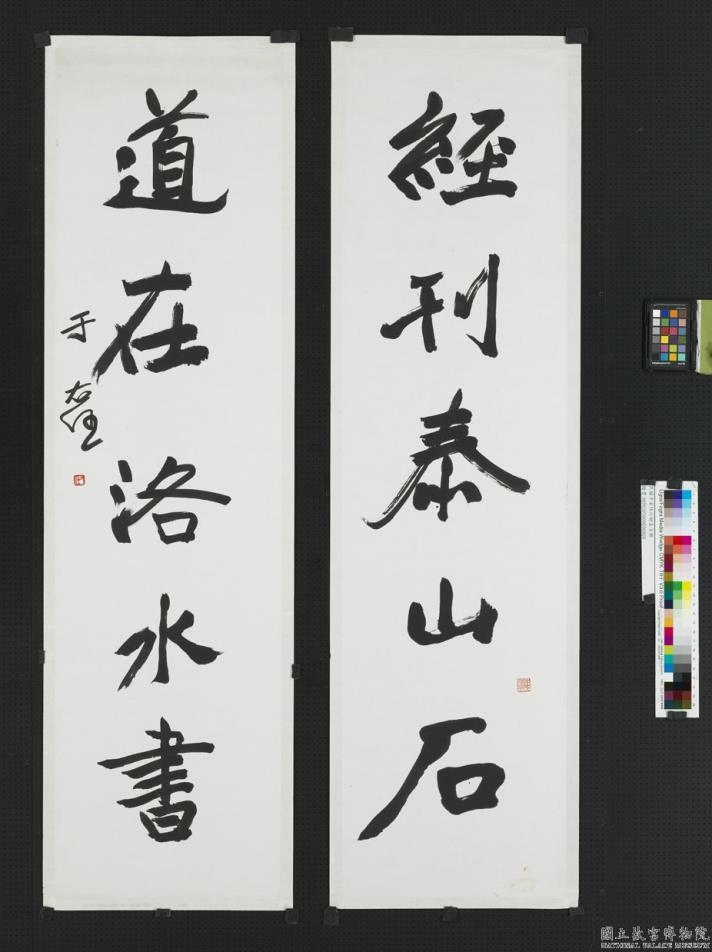 經刊泰山石
道在洛水書
于右任
國立故宮博物院
NATIONAL PALACE MUSEUM